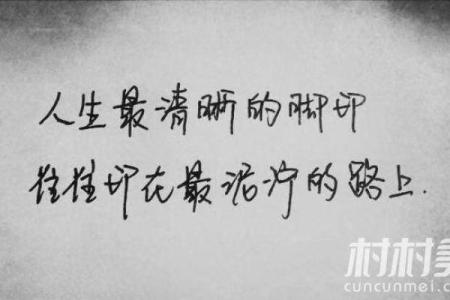 人生最清晰的脚印
往往印在最泥泞的路上.
村村美
cuncunmei.com